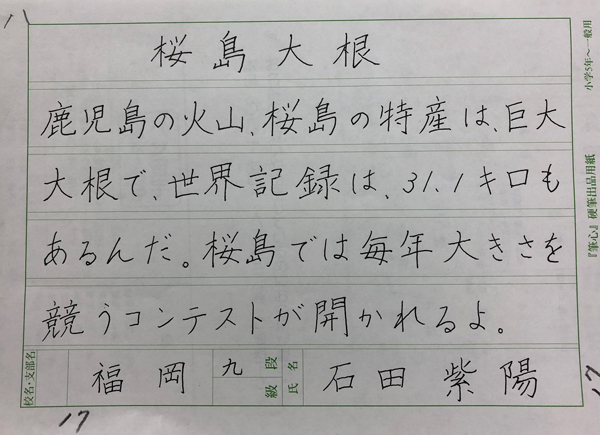 八
桜島大根
鹿児島の火山、桜島の特産は、巨大
大根で、世界記録は、31.1キロも
あるんだ。桜島では毎年大きさを
競うコンテストが開かれるよ。
校名・支部名 福岡 九 段級 氏名 石田紫陽
17
17
小学5年〜一般用
『筆心』硬筆出品用紙